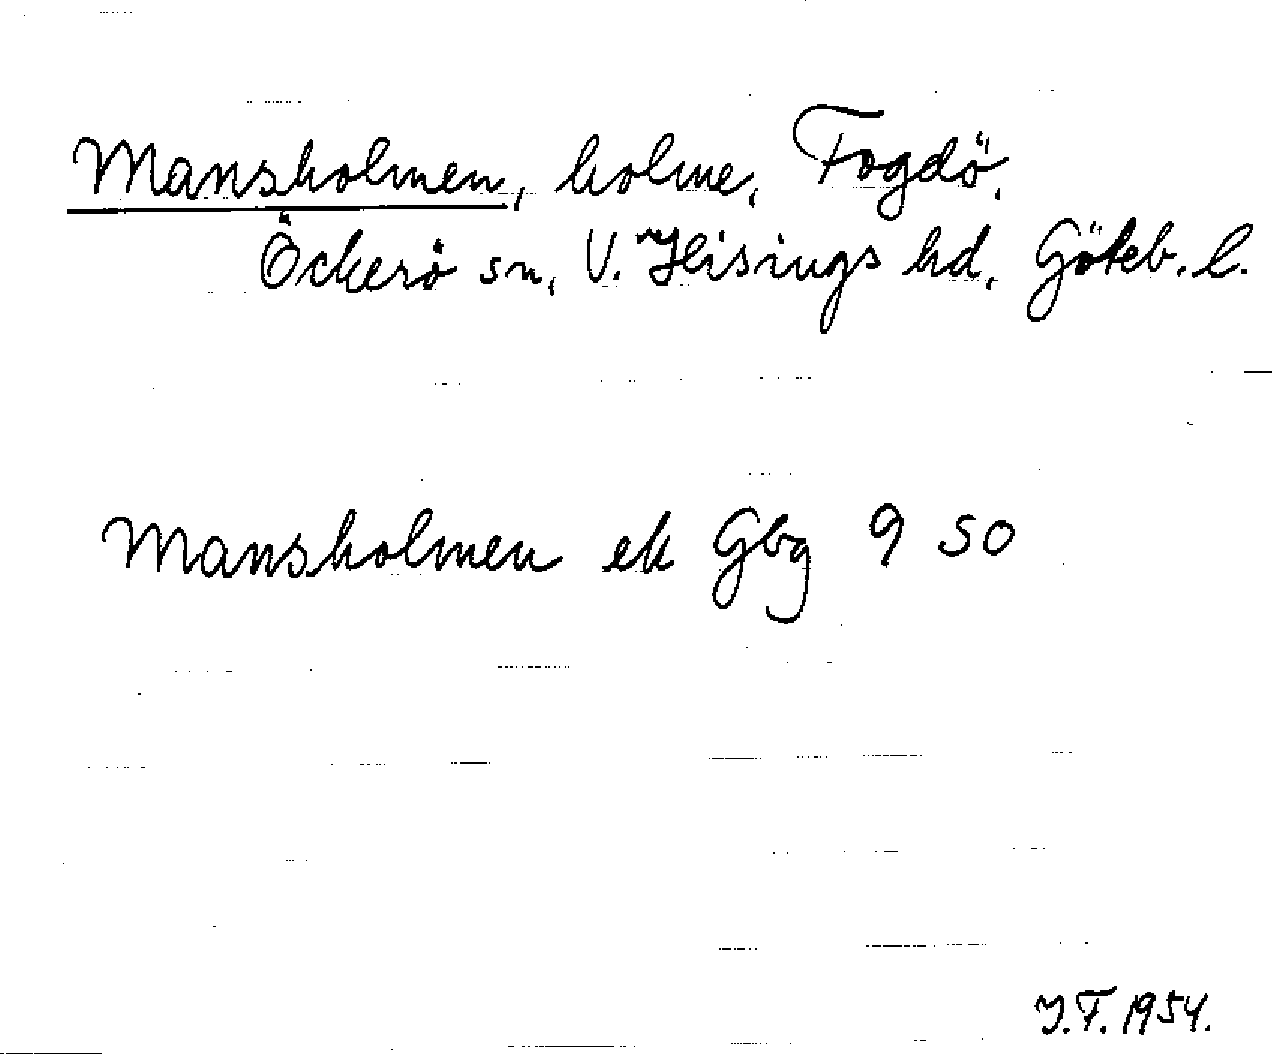 Mansholmen, holme, Fogdö,
Öckerö sn, V. Hisings hd, Göteb. l.
Mansholmen ek Gbg 9 SO
J.F. 1954.